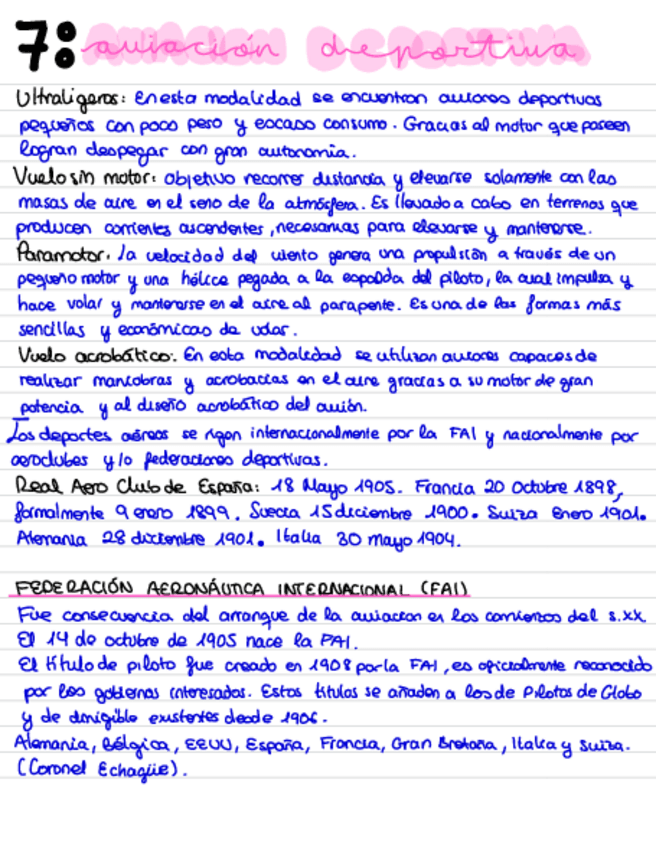 7: aviación deportiva
Ultraligeros: En esta modalidad se encuentran aviones deportivos
pequeños con poco peso y escaso consumo. Gracias al motor que poseen
logran despegar con gran autonomía.
Vuelo sin motor: objetivo recorrer distancia y elevarse solamente con las
masas de aire en el seno de la atmósfera. Es llevado a cabo en terrenos que
producen corrientes ascendentes, necesarias para elevarse y mantenerse.
Paramotor. la velocidad del viento genera una propulsión a través de un
pequeño motor y una hélice pegada a la espalda del piloto, la cual impulsa y
hace volar y mantenerse en el aire al parapente. Es una de las formas más
sencillas y económicas de volar.
Vuelo acrobático: En esta modalidad se utilizan aviones capaces de
realizar maniobras y acrobacias en el aire gracias a su motor de gran
potencia y al diseño acrobático del avión.
Los deportes aéreos se rigen internacionalmente por la FAI y nacionalmente por
aeroclubes y/o federaciones deportivas.
Real Aero Club de España: 18 Mayo 1905. Francia 20 Octubre 1898,
formalmente 9 enero 1899. Suecia 15 diciembre 1900. Suiza Enero 1901.
Alemania 28 diciembre 1902. Italia 30 mayo 1904.
FEDERACIÓN AERONÁUTICA INTERNACIONAL (FAI)
Fue consecuencia del arranque de la aviacion en los comienzos del s.XX
El 14 de octubre de 1905 nace la FAI.
El título de piloto fue creado en 1908 por la FAI, es oficialmente reconocido
por los gobiernos interesados. Estos títulos se añaden a los de Pilotos de Globo
y de dirigible existentes desde 1906.
Alemania, Bélgica, EEUU, España, Francia, Gran Bretaña, Italia y Suiza.
(Coronel Echagüe).